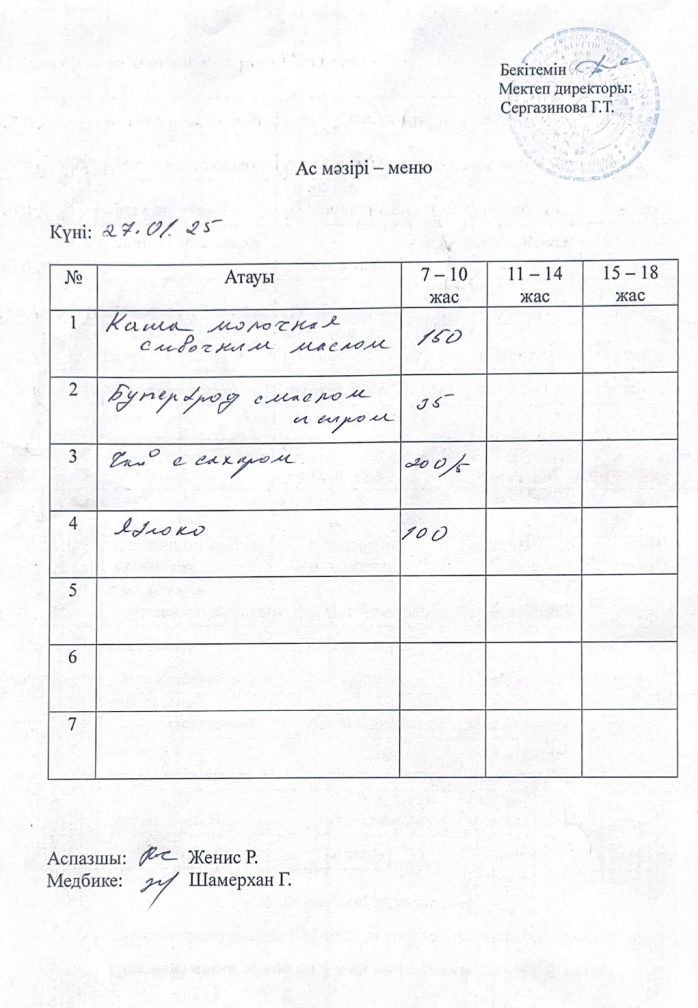 Бекітемін
Мектеп директоры:
Сергазинова Г.Т.
Ас мәзірі – меню
Күні: 27.01.25
№ Атауы 7 – 10 жас 11 – 14 жас 15 – 18 жас
1 Каша молочная
сливочным маслом 150
2 Бутерброд с маслом
и сыром 35
3 Чай с сахаром 200/5
4 Яблоко 100
5
6
7
Аспазшы: Женис Р.
Медбике: Шамерхан Г.